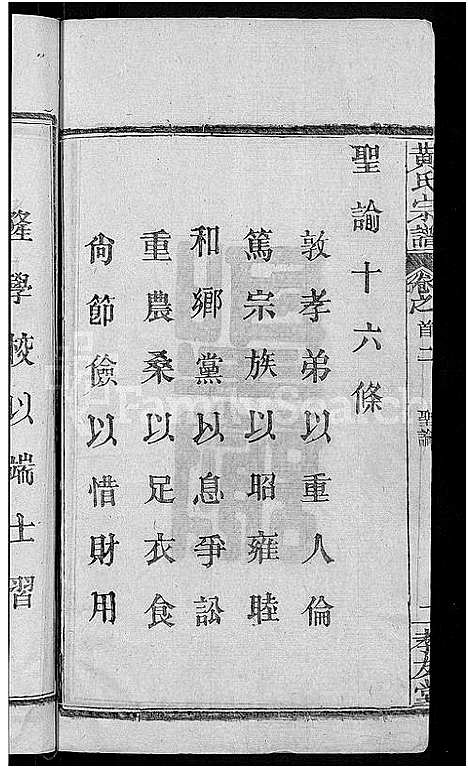 黄氏宗譜
卷之首二
聖諭
一孝友堂
聖諭十六條
敦孝弟以重人倫
篤宗族以昭雍睦
和鄉黨以息爭訟
重農桑以足衣食
尙節儉以惜財用
隆學校以端士習
FamilySearch